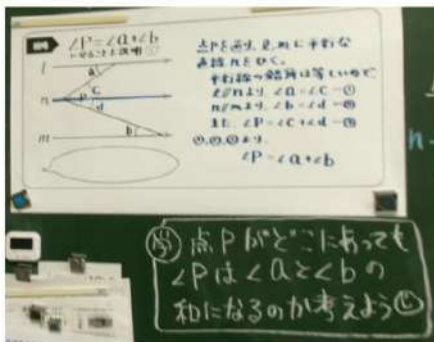 ∠P=∠a+∠b
になることを説明
l
a
n
P
c
d
m
b
点Pを通り、l、mに平行な
直線nをひく。
平行線の錯角は等しいので
l//nより、∠a=∠c―①
n//mより、∠b=∠d―②
また、∠P=∠c+∠d―③
①,②,③より、
∠P=∠a+∠b
n
点Pがどこにあっても
∠Pは∠aと∠bの
和になるのか考えよう